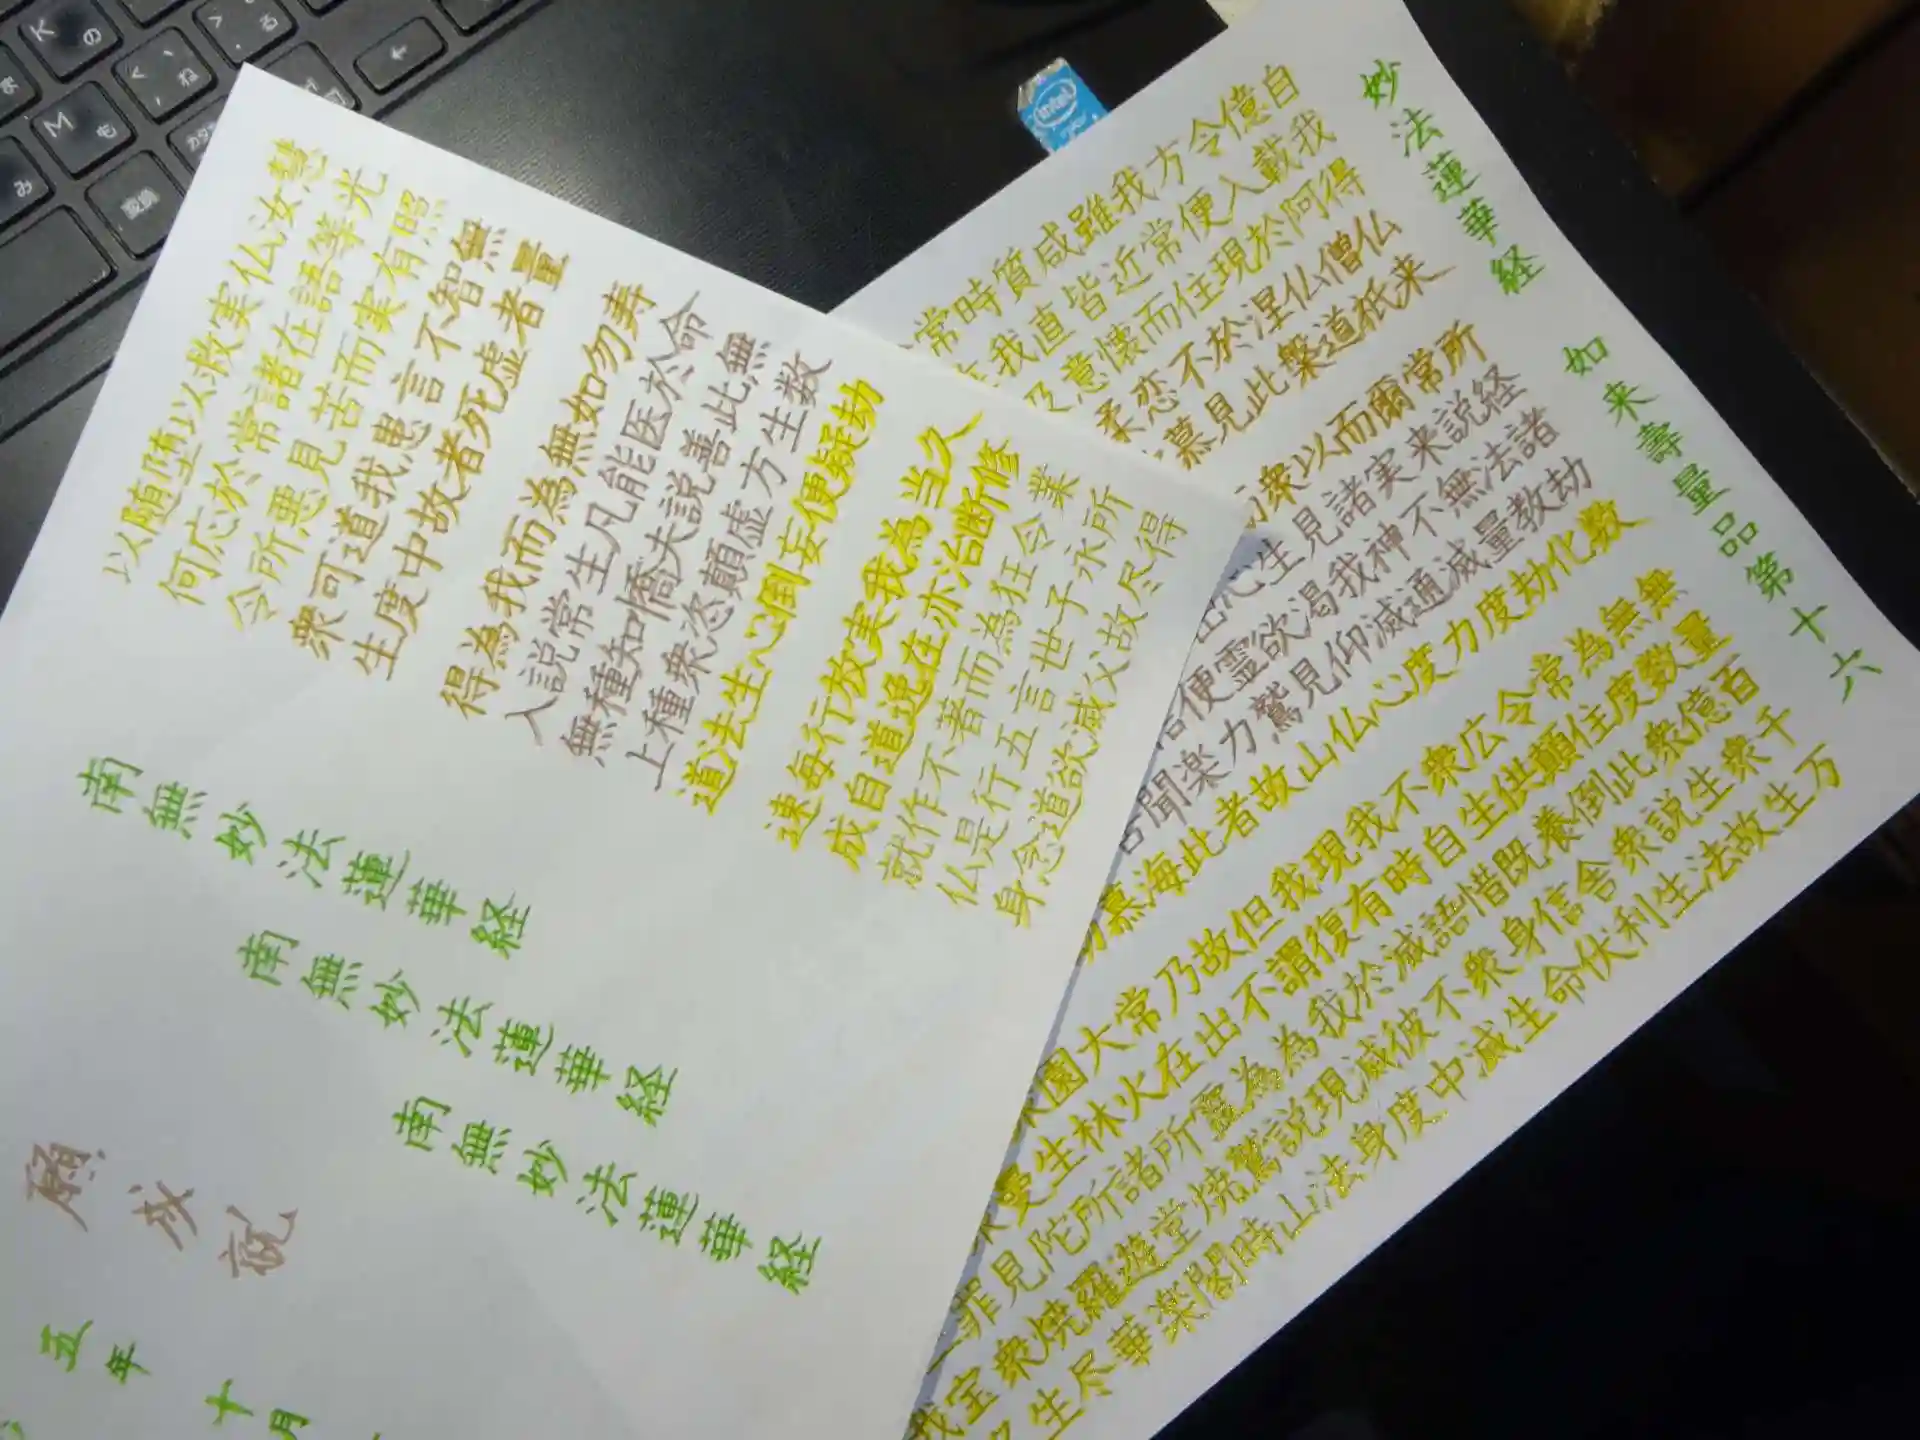 妙法蓮華経 如来壽量品第十六
自我得仏来 所経諸劫数 無量百千万
億載阿僧祇 常説法教化 無数億衆生
令入於仏道 爾来無量劫 為度衆生故
方便現涅槃 而実不滅度 常住此説法
我常住於此 以諸神通力 令顛倒衆生
雖近而不見 衆見我滅度 広供養舎利
咸皆懐恋慕 而生渇仰心 衆生既信伏
質直意柔 心欲見仏 不自惜身命
時我及 出霊鷲山 我時語衆生
常在 便力故 現有滅不滅
楽者 我復於彼中
聞此 但謂我滅度
海 故不為現身
慕 乃出為説法
常在霊鷲山
大火所焼時
園林諸堂閣
生所遊楽
曼陀羅華
見焼尽
罪衆生
慧光照無量 寿命無数劫 久修業所得
汝等有智者 勿於此生疑 当断令永尽
仏語実不虚 如医善方便 為治狂子故
実在而言死 無能説虚妄 我亦為世父
救諸苦患者 為凡夫顛倒 実在而言滅
以常見我故 而生憍恣心 放逸著五欲
堕於悪道中 我常知衆生 行道不行道
随応所可度 為説種種法 毎自作是念
以何令衆生 得入無上道 速成就仏身
南無妙法蓮華経
南無妙法蓮華経
南無妙法蓮華経
願成就
五年十月
intel
K の
M も
み
ね
る